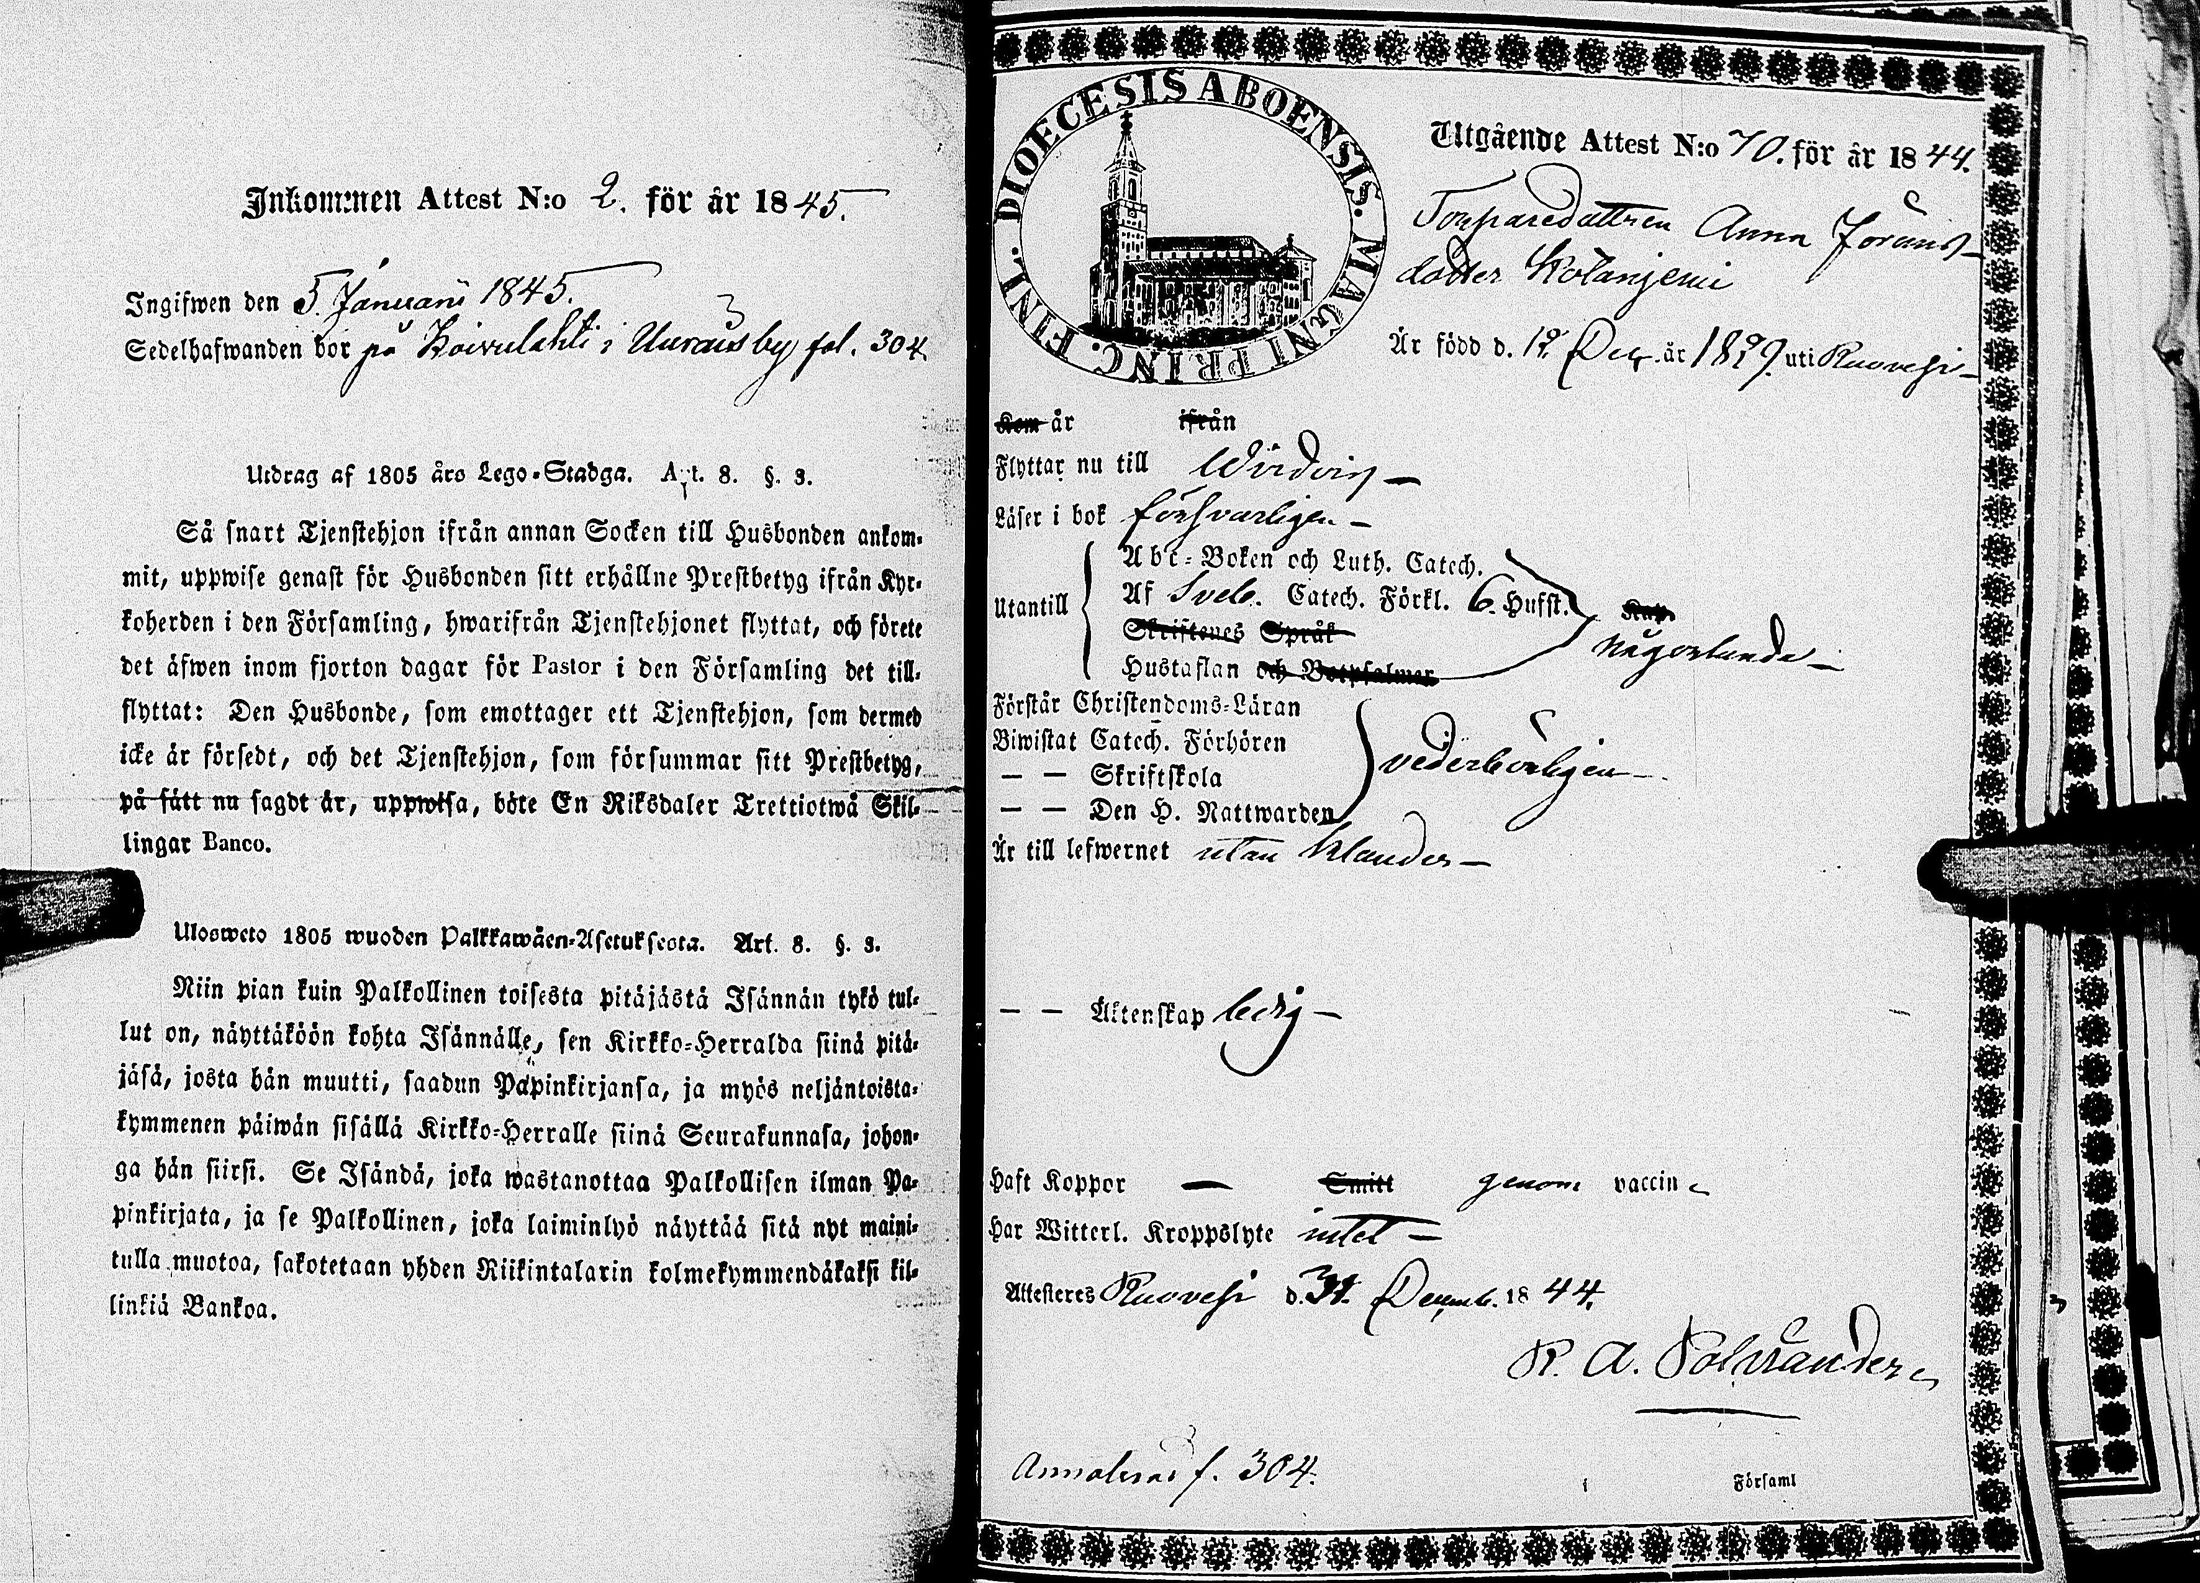 Inkommen Attest N:o 2. för år 1845.
Ingifwen den 5. Januari 1845.
Sedelhafwanden bor på Koivulahti i Uurais by fol. 304
Utdrag af 1805 års Lego-Stadga. Art. 8. §. 3.
Så snart Tjenstehjon ifrån annan Socken till Husbonden ankom-
mit, uppwise genast för Husbonden sitt erhållne Prestbetyg ifrån Kyr-
koherden i den Församling, hwarifrån Tjenstehjonet flyttat, och förete
det äfwen inom fjorton dagar för Pastor i den Församling det till-
flyttat: Den Husbonde, som emottager ett Tjenstehjon, som dermed
icke är försedt, och det Tjenstehjon, som försummar sitt Prestbetyg,
på sätt nu sagdt är, uppwisa, böte En Riksdaler Trettiotwå Skil-
lingar Banco.
Ulosweto 1805 wuoden Palkkawäen-Asetuksesta. Art. 8. §. 3.
Niin pian kuin Palkollinen toisesta pitäjästä Isännän tykö tul-
lut on, näyttäköön kohta Isännälle, sen Kirkko-Herralda siinä pitä-
jäsä, josta hän muutti, saadun Papinkirjansa, ja myös neljäntoista-
kymmenen päiwän sisällä Kirkko-Herralle siinä Seurakunnasa, johon-
ga hän siirsi. Se Isändä, joka wastanottaa Palkollisen ilman Pa-
pinkirjata, ja se Palkollinen, joka laiminlyö näyttää sitä nyt maini-
tulla muotoa, sakotetaan yhden Riikintalarin kolmekymmendäkaksi kil-
linkiä Bankoa.
DIOECESIS ABOENSIS. MAGNI PRINC. FINL.
Utgående Attest N:o 70. för år 1844.
Torparedottren Anna Jörans
dotter Kolanjemi
Är född d. 12. Dec. år 1829. uti Ruovesi
Kom år ifrån
Flyttar nu till Wirdois
Läser i bok försvarligen
Utantill
Abc-Boken och Luth. Catech.
Af Sveb. Catech. Förkl. 6. Hufst.
Skriftenes Språk
Hustaflan och Botpsalmer
någorlunda
Förstår Christendoms-Läran
Biwistat Catech. Förhören
— — Skriftskola
— — Den H. Nattwarden
vederbörligen
Är till lefwernet utan klander
— — Äktenskap ledig
Haft Koppor — Smitt genom vaccin
Har Witterl. Kroppslyte intet
Attesteras Ruovesi d. 31. Decemb. 1844.
R. A. Polviander
Annoteras f. 304.
Församl